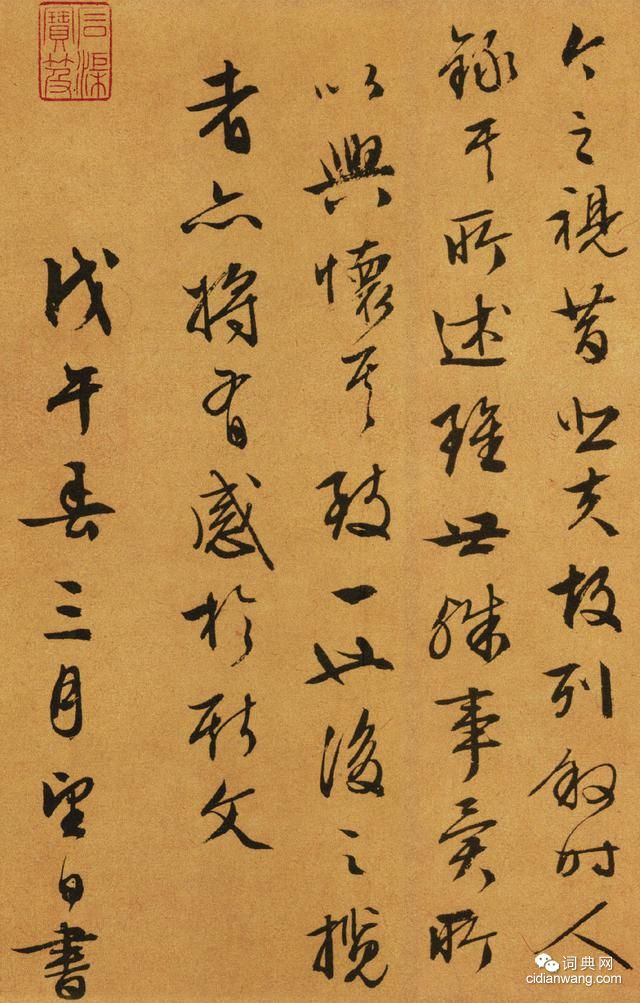 今之視昔悲夫故列叙時人
錄其所述雖世殊事異所
以興懷其致一也後之攬
者亦將有感於斯文
戊午春三月望日書
石渠
寶笈
词典网
cidianwang.com